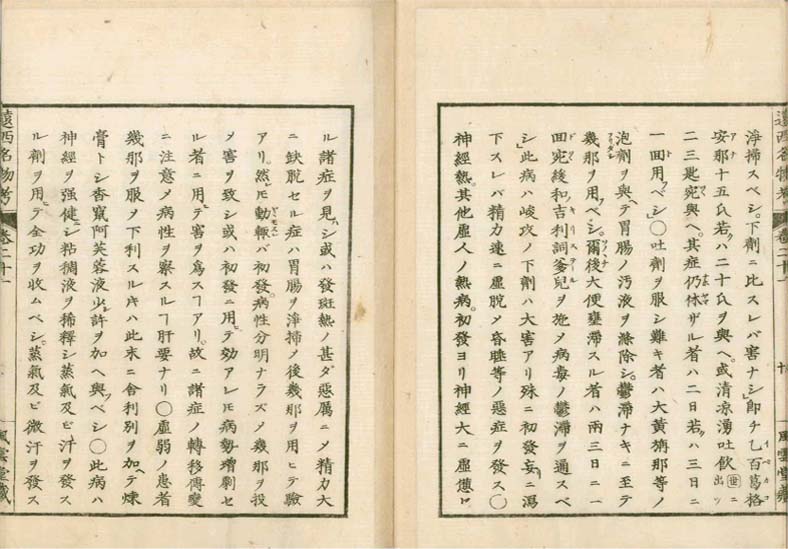 遠西名物考 卷二十一 十 風雲堂藏
淨掃スベシ。下劑ニ比スレバ害ナシ」卽チ乙百葛格
安那十五氏若クハ二十氏ヲ與ヘ。或清涼湧吐飲 出ツ ニ
二三匙宛與ヘ。其症仍休ザル者ハ二日若クハ三日ニ
一回用フベシ」〇吐劑ヲ服シ難キ者ハ大黄旃那等ノ
泡劑ヲ與ヘテ胃腸ノ汚液ヲ滌除シ。鬱滯ナキニ至テ
幾那ヲ用フベシ。爾後大便壅滯スル者ハ兩三日ニ一
回宛緩和吉利詞爹兒ヲ施メ病毒ノ鬱滯ヲ通スベ
シ」此病ハ峻攻ノ下劑ハ大害アリ殊ニ初發妄ニ瀉
下スレバ精力速ニ虛脱メ昏睡等ノ惡症ヲ發ス〇
神經熱。其他虛人ノ熱病。初發ヨリ神經大ニ虛憊
ル諸症ヲ見ハシ或ハ發斑熱ノ甚ダ惡厲ニメ精力大
ニ缺脱セル症ハ胃腸ヲ淨掃ノ後幾那ヲ用ヒテ驗
アリ。然レモ動輙バ初發。病性分明ナラズメ幾那ヲ投
メ害ヲ致シ或ハ初發ニ用テ効アレモ病勢增劇セ
ル者ニ用ヒテ害ヲ爲スヿアリ。故ニ諸症ノ轉移傳變
ニ注意メ病性ヲ察スルヿ肝要ナリ〇虛弱ノ患者
幾那ヲ服メ下利スルキハ此末ニ舍利別ヲ加ヘテ煉
膏トシ香竄阿芙蓉液少許ヲ加ヘ與フベシ〇此病ハ
神經ヲ强健ニシ粘稠液ヲ稀釋シ蒸氣及ビ汗ヲ發ス
ル劑ヲ用ヒテ全功ヲ收ムベシ。蒸氣及ビ微汗ヲ發ス
遠西名物考 卷二十一 風雲堂藏